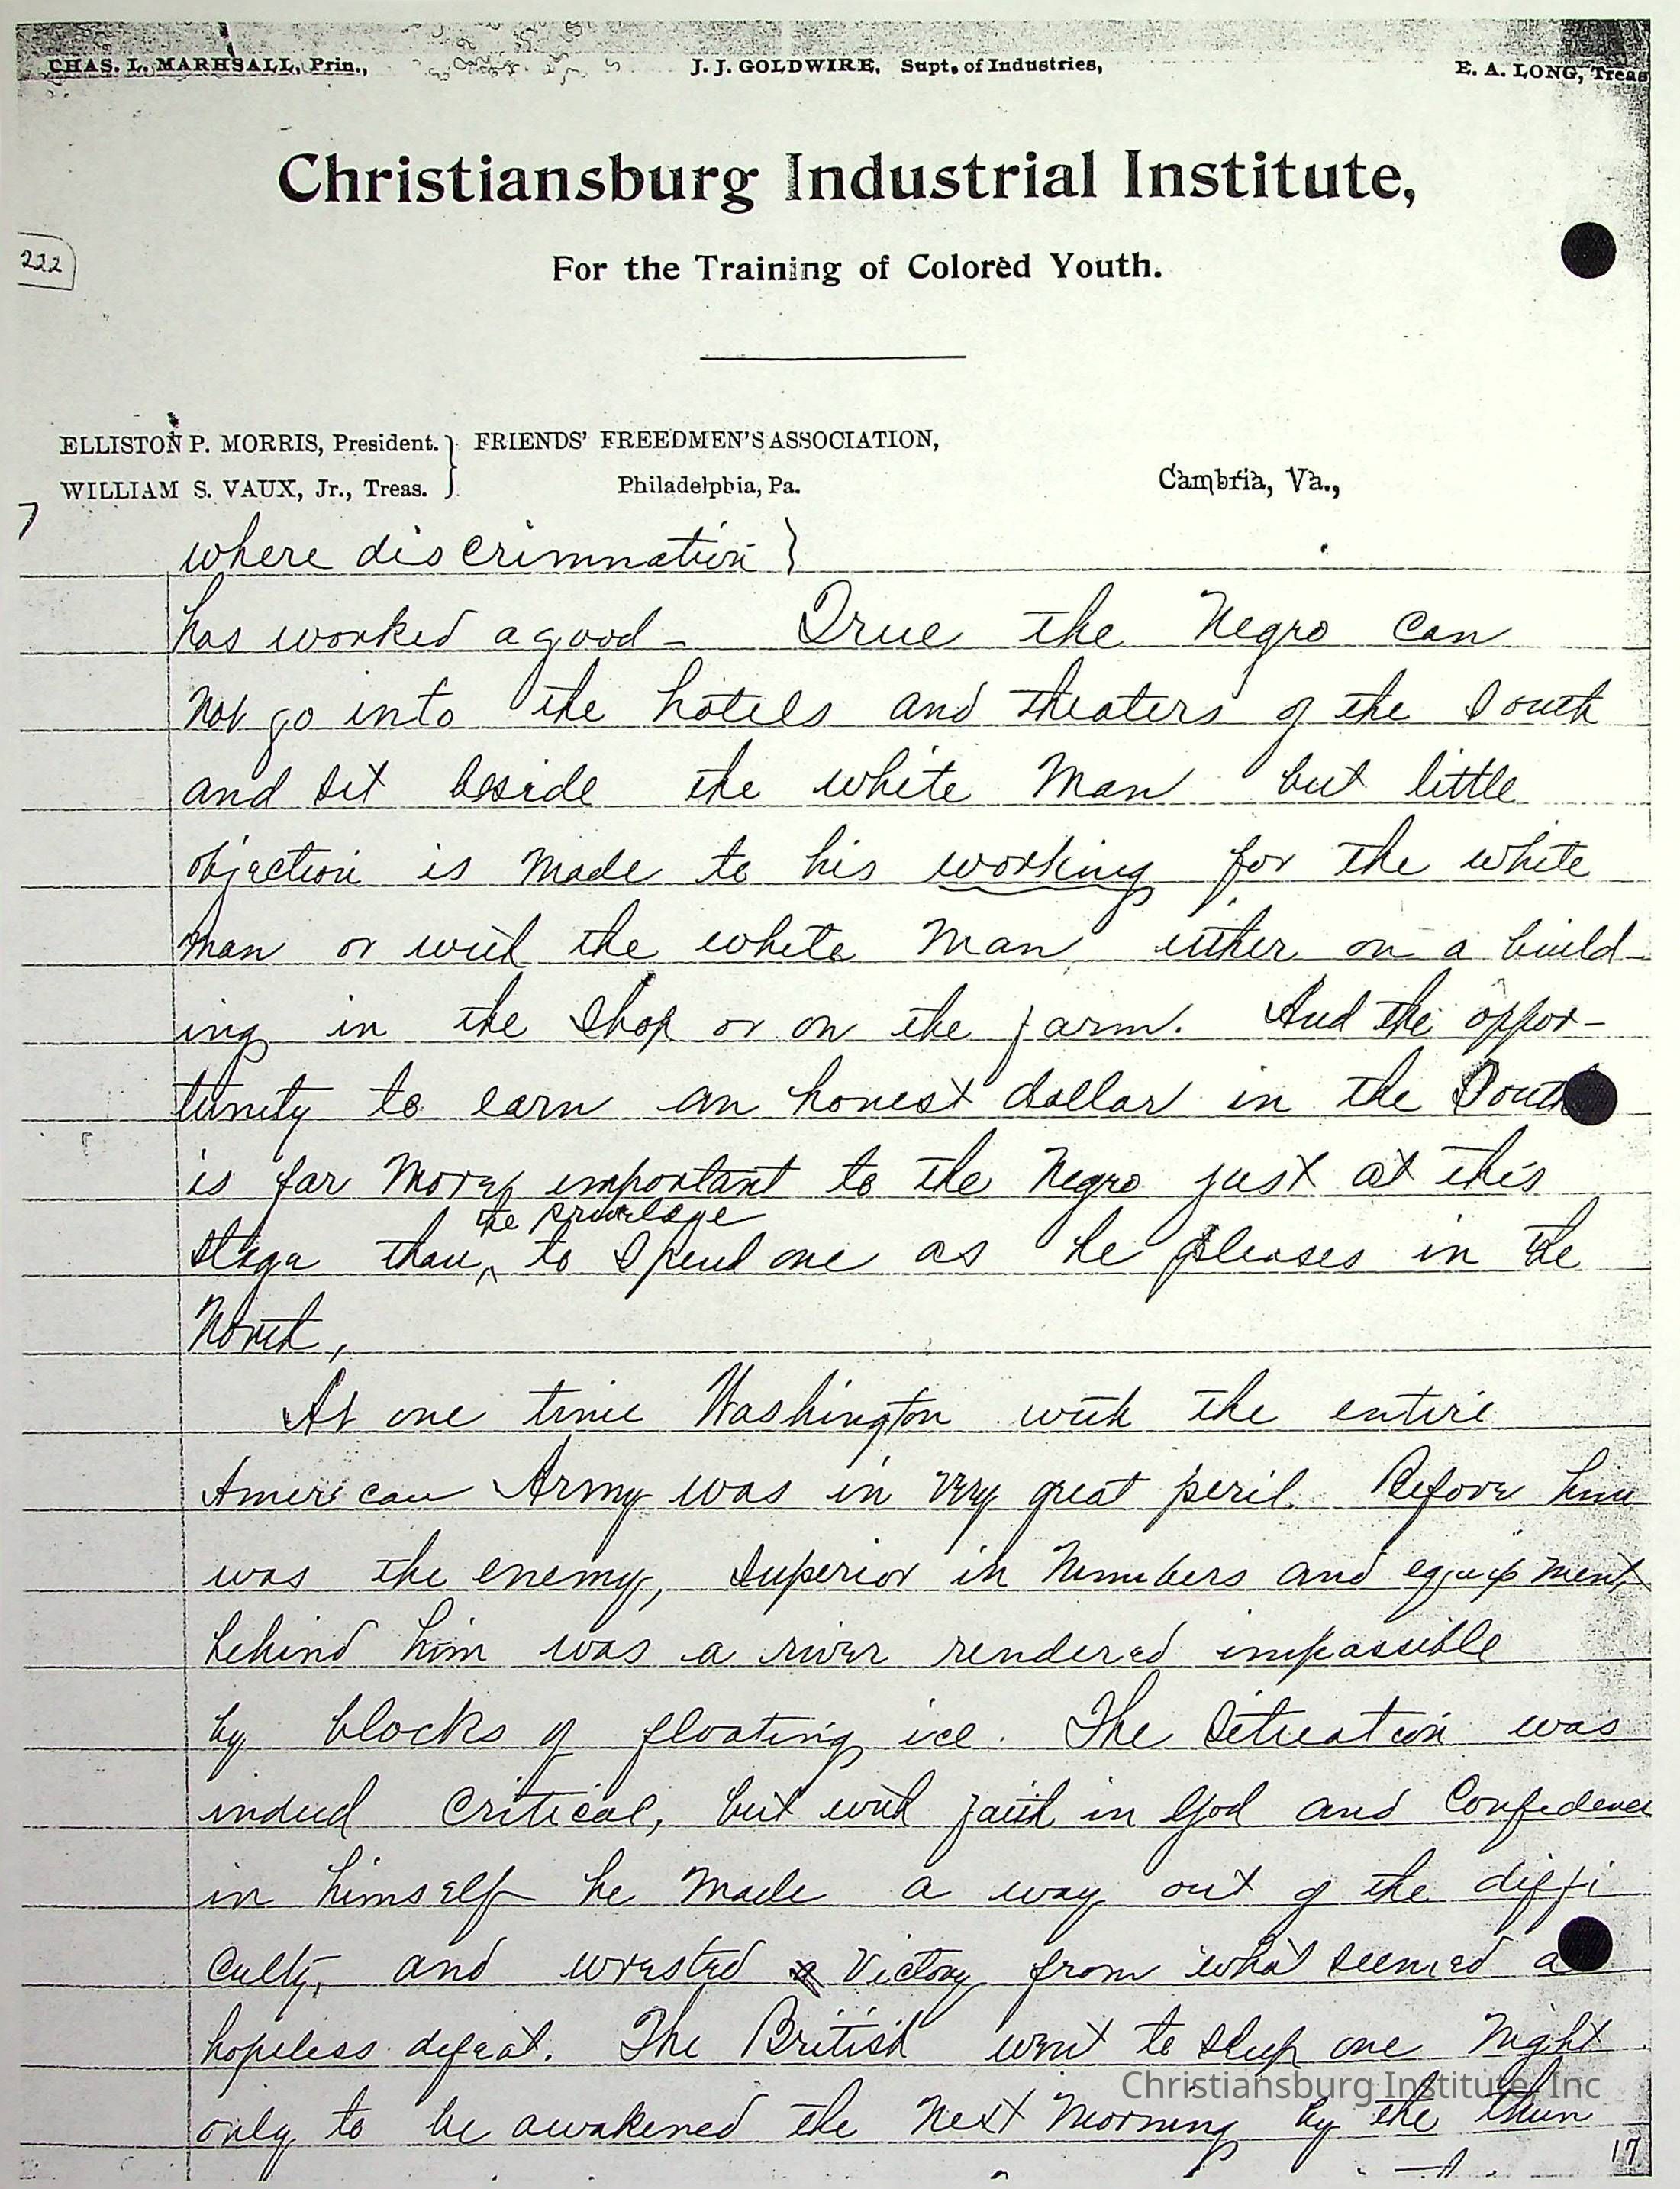 CHAS. L. MARHSALL, Prin., J. J. GOLDWIRE, Supt. of Industries, E. A. LONG, Treas
Christiansburg Industrial Institute,
222
For the Training of Colored Youth.
ELLISTON P. MORRIS, President. } FRIENDS' FREEDMEN'S ASSOCIATION,
WILLIAM S. VAUX, Jr., Treas. Philadelphia, Pa. Cambria, Va.,
7
where discrimnation }
has worked a good - True the Negro can
not go into the hotels and theaters of the South
and sit beside the white man but little
objection is made to his working for the white
man or with the white man, either on a build-
ing in the shop or on the farm. And the oppor-
tunity to earn an honest dollar in the South
is far more important to the Negro just at this
the privelage
stage than ^ to spend one as he pleases in the
North,
At one time Washington with the entire
American Army was in very great peril. Before him
was the enemy, superior in numbers and equipment,
behind him was a river rendered impassible
by blocks of floating ice. The situation was
indeed critical, but with faith in God and confidence
in himself he made a way out of the diffi
culty, and wrested a victory from what seemed a
hopeless defeat. The British went to sleep one night
Christiansburg Institute, Inc
only to be awakened the next morning by the thun
17